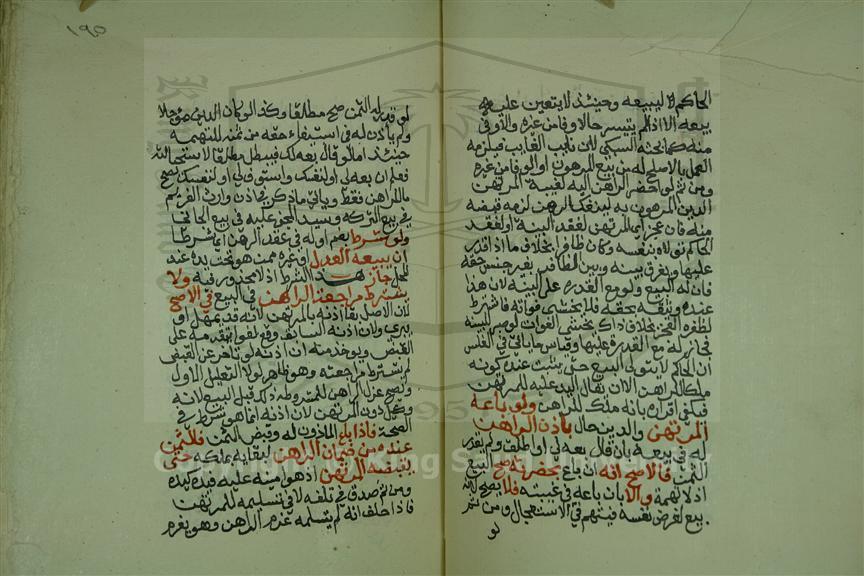 الحاكم لا لبيعه وحينئذ لا يتعين عليه
بيعه الا اذا لم يتيسر حالا وفا من غيره والاوفى
منه كما بحثه السبكي لان نايب الغايب فيلزمه
العمل بالاصلح له من بيع المرهون او الوفا من غيره
ومن ثم لو احضر الراهن اليه لغيبة المرتهن
الدين المرهون به ليفك الرهن لزمه قبضه
منه فان عجز اي المرتهن لفقد البينة او لفقد
الحاكم تولاه بنفسه وكان ظافرا بخلاف ما اذا قدر
عليها ويفرق بينه وبين الظافر بغير جنس حقه
فان له البيع ولو مع القدرة على البينة لان هذا
عنده وثيقة بحقه فلا يخشى فواته فاشترط
لظفره العجز بخلاف ذاك يخشى الفوات لو صبر للبينة
فجاز له مع القدرة عليها وقياس ما ياتي في الفلس
ان الحاكم لا يتولى البيع حتى يثبت عنده كونه
ملك الراهن الا ان يقال اليد عليه للمرتهن
فيكفي اقراره بانه ملك الراهن ولو باعه
المرتهن والدين حال باذن الراهن
له في بيعه بان قال بعه لي او اطلق ولم يقدر
الثمن فالاصح انه ان باع بحضرته صح البيع
اذ لا تهمة والا بان باعه في غيبته فلا يصح لانه
بيع لغرض نفسه فيتهم في الاستعجال ومن ثم
لو
١٩٥
لو قدر له الثمن صح مطلقا وكذا لو كان الدين مؤجلا
ولم ياذن له في استيفاء حقه من ثمنه للتهمة
حينئذ اما لو قال بعه لك فيبطل مطلقا لاستحالته
فعلم ان بعه لي او لنفسك واستوف لي او لنفسك يصح
ما للراهن فقط وياتي ما ذكر في اذن وارث الغريم
في بيع التركة وسيد المجني عليه في بيع الجاني
ولو شرط بضم اوله في عقد الرهن اي شرطا
ان يبيعه العدل او غيره ممن هو تحت يده عند
المحل جاز هذا الشرط اذ لا محذور فيه ولا
يشترط مراجعة الراهن في البيع في الاصح
لان الاصل بقا اذنه بالمرتهن لانه قد يمهل او
يبري ولان اذنه السابق وقع لغوا بتقدمه على
القبض ويوخذ منه ان اذنه لو تاخر عن القبض
لم يشترط مراجعته وهو ظاهر لولا التعليل الاول
ويصح عزل الراهن للمشروط له ذلك قبل البيع لانه
وكيله دون المرتهن لان اذنه انما هو شرط في
الصحة فاذا باع الماذون له وقبض الثمن فالثمن
عنده من ضمان الراهن لبقائه بملكه حتى
يقبضه المرتهن اذ هو امينه عليه فيده يده
ومن ثم صدق في تلفه لا في تسليمه للمرتهن
فاذا حلف انه لم يتسلمه غرم الراهن وهو يغرم